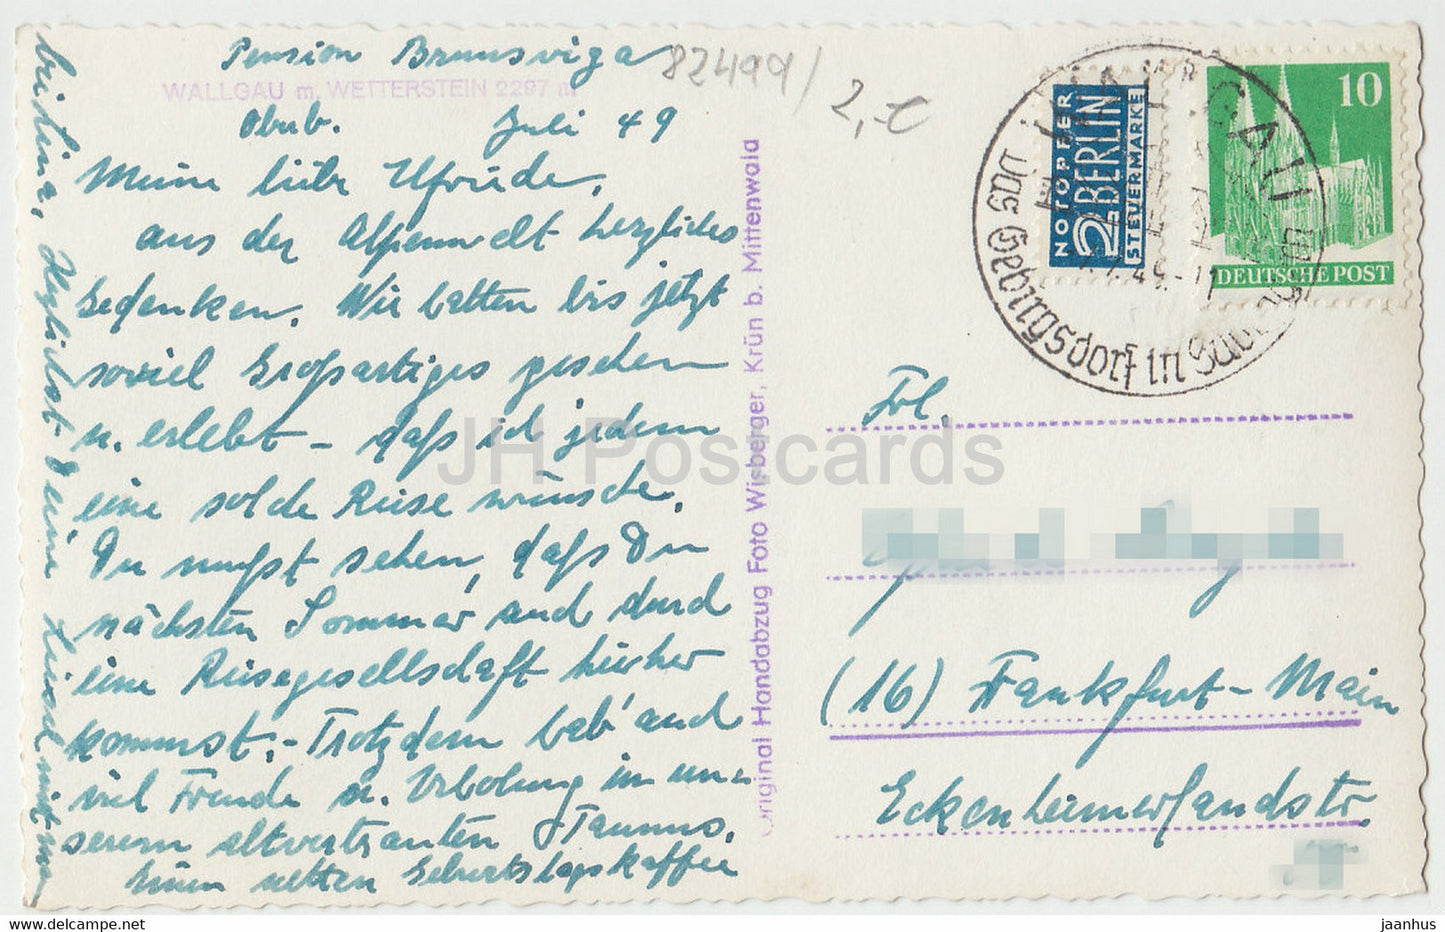 Pension Brunsviga
82499/
2,-€
WALLGAU m. WETTERSTEIN 2297 m
Obub. Juli 49
Meine liebe Elfriede,
aus der Alpenwelt herzliches
Gedenken. Wir hatten bis jetzt
soviel Großartiges gesehen
u. erlebt – daß ich jedem
eine solche Reise wünsche.
Du mußt sehen, daß Du
nächsten Sommer auch durch
eine Reisegesellschaft hierher
kommst. – Trotzdem hab' auch
viel Freude u. Erholung im un-
serem altvertrauten Taunus.
Einen netten Geburtstagskaffee
Herzlichst Deine
Original Handabzug Foto Wisberger, Krün b. Mittenwald
NOTOPFER
2 BERLIN
STEUERMARKE
10
DEUTSCHE POST
WALLGAU
Das Gebirgsdorf in
49-11
Frl.
(16) Frankfurt-Main
Eckenheimerlandstr.
JH Postcards
https://www.delcampe.net
jaanhus